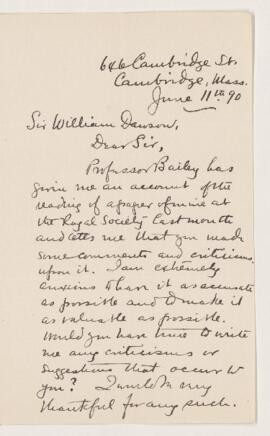 646 Cambridge St.
Cambridge, Mass.
June 11th 90
Sir William Dawson,
Dear Sir,
Professor Bailey has
given me an account of the
reading of a paper of mine at
the Royal Society last month
and tells me that you made
some comments and criticisms
upon it. I am extremely
anxious to have it as accurate
as possible and to make it
as valuable as possible.
Would you have time to write
me any criticisms or
suggestions that occur to
you? I would be very
thankful for any such.